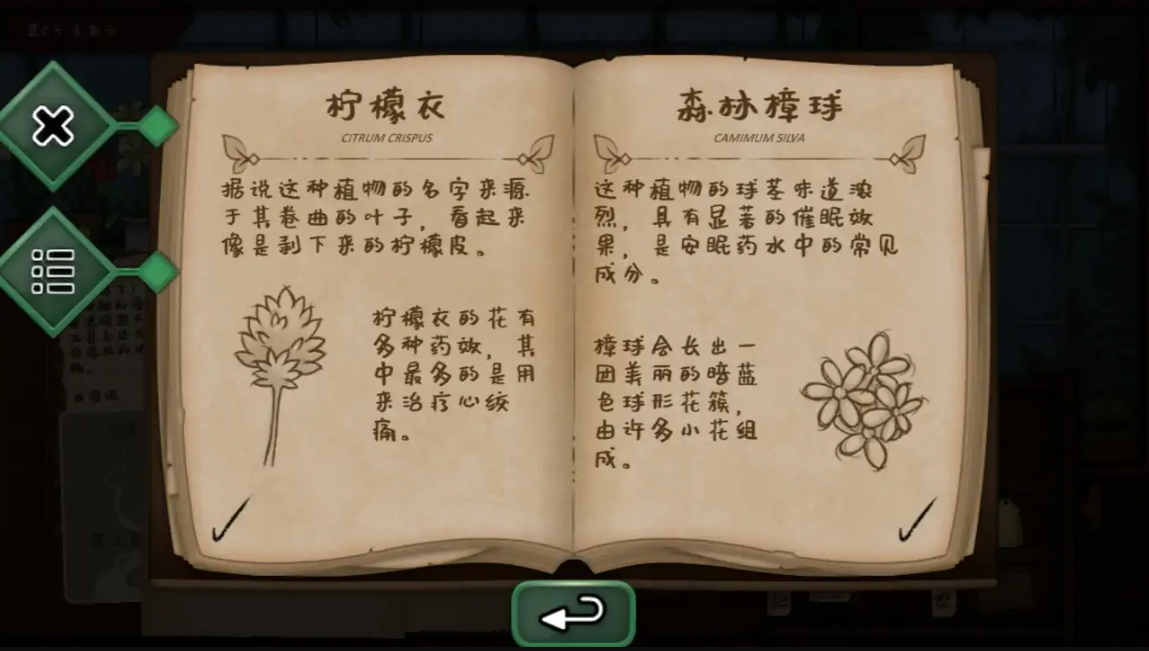 柠檬衣
CITRUM CRISPUS
据说这种植物的名字来源
于其卷曲的叶子，看起来
像是剥下来的柠檬皮。
柠檬衣的花有
多种药效，其
中最多的是用
来治疗心绞
痛。
森林樟球
CAMIMUM SILVA
这种植物的球茎味道浓
烈，具有显著的催眠效
果，是安眠药水中的常见
成分。
樟球会长出一
团美丽的暗蓝
色球形花簇，
由许多小花组
成。